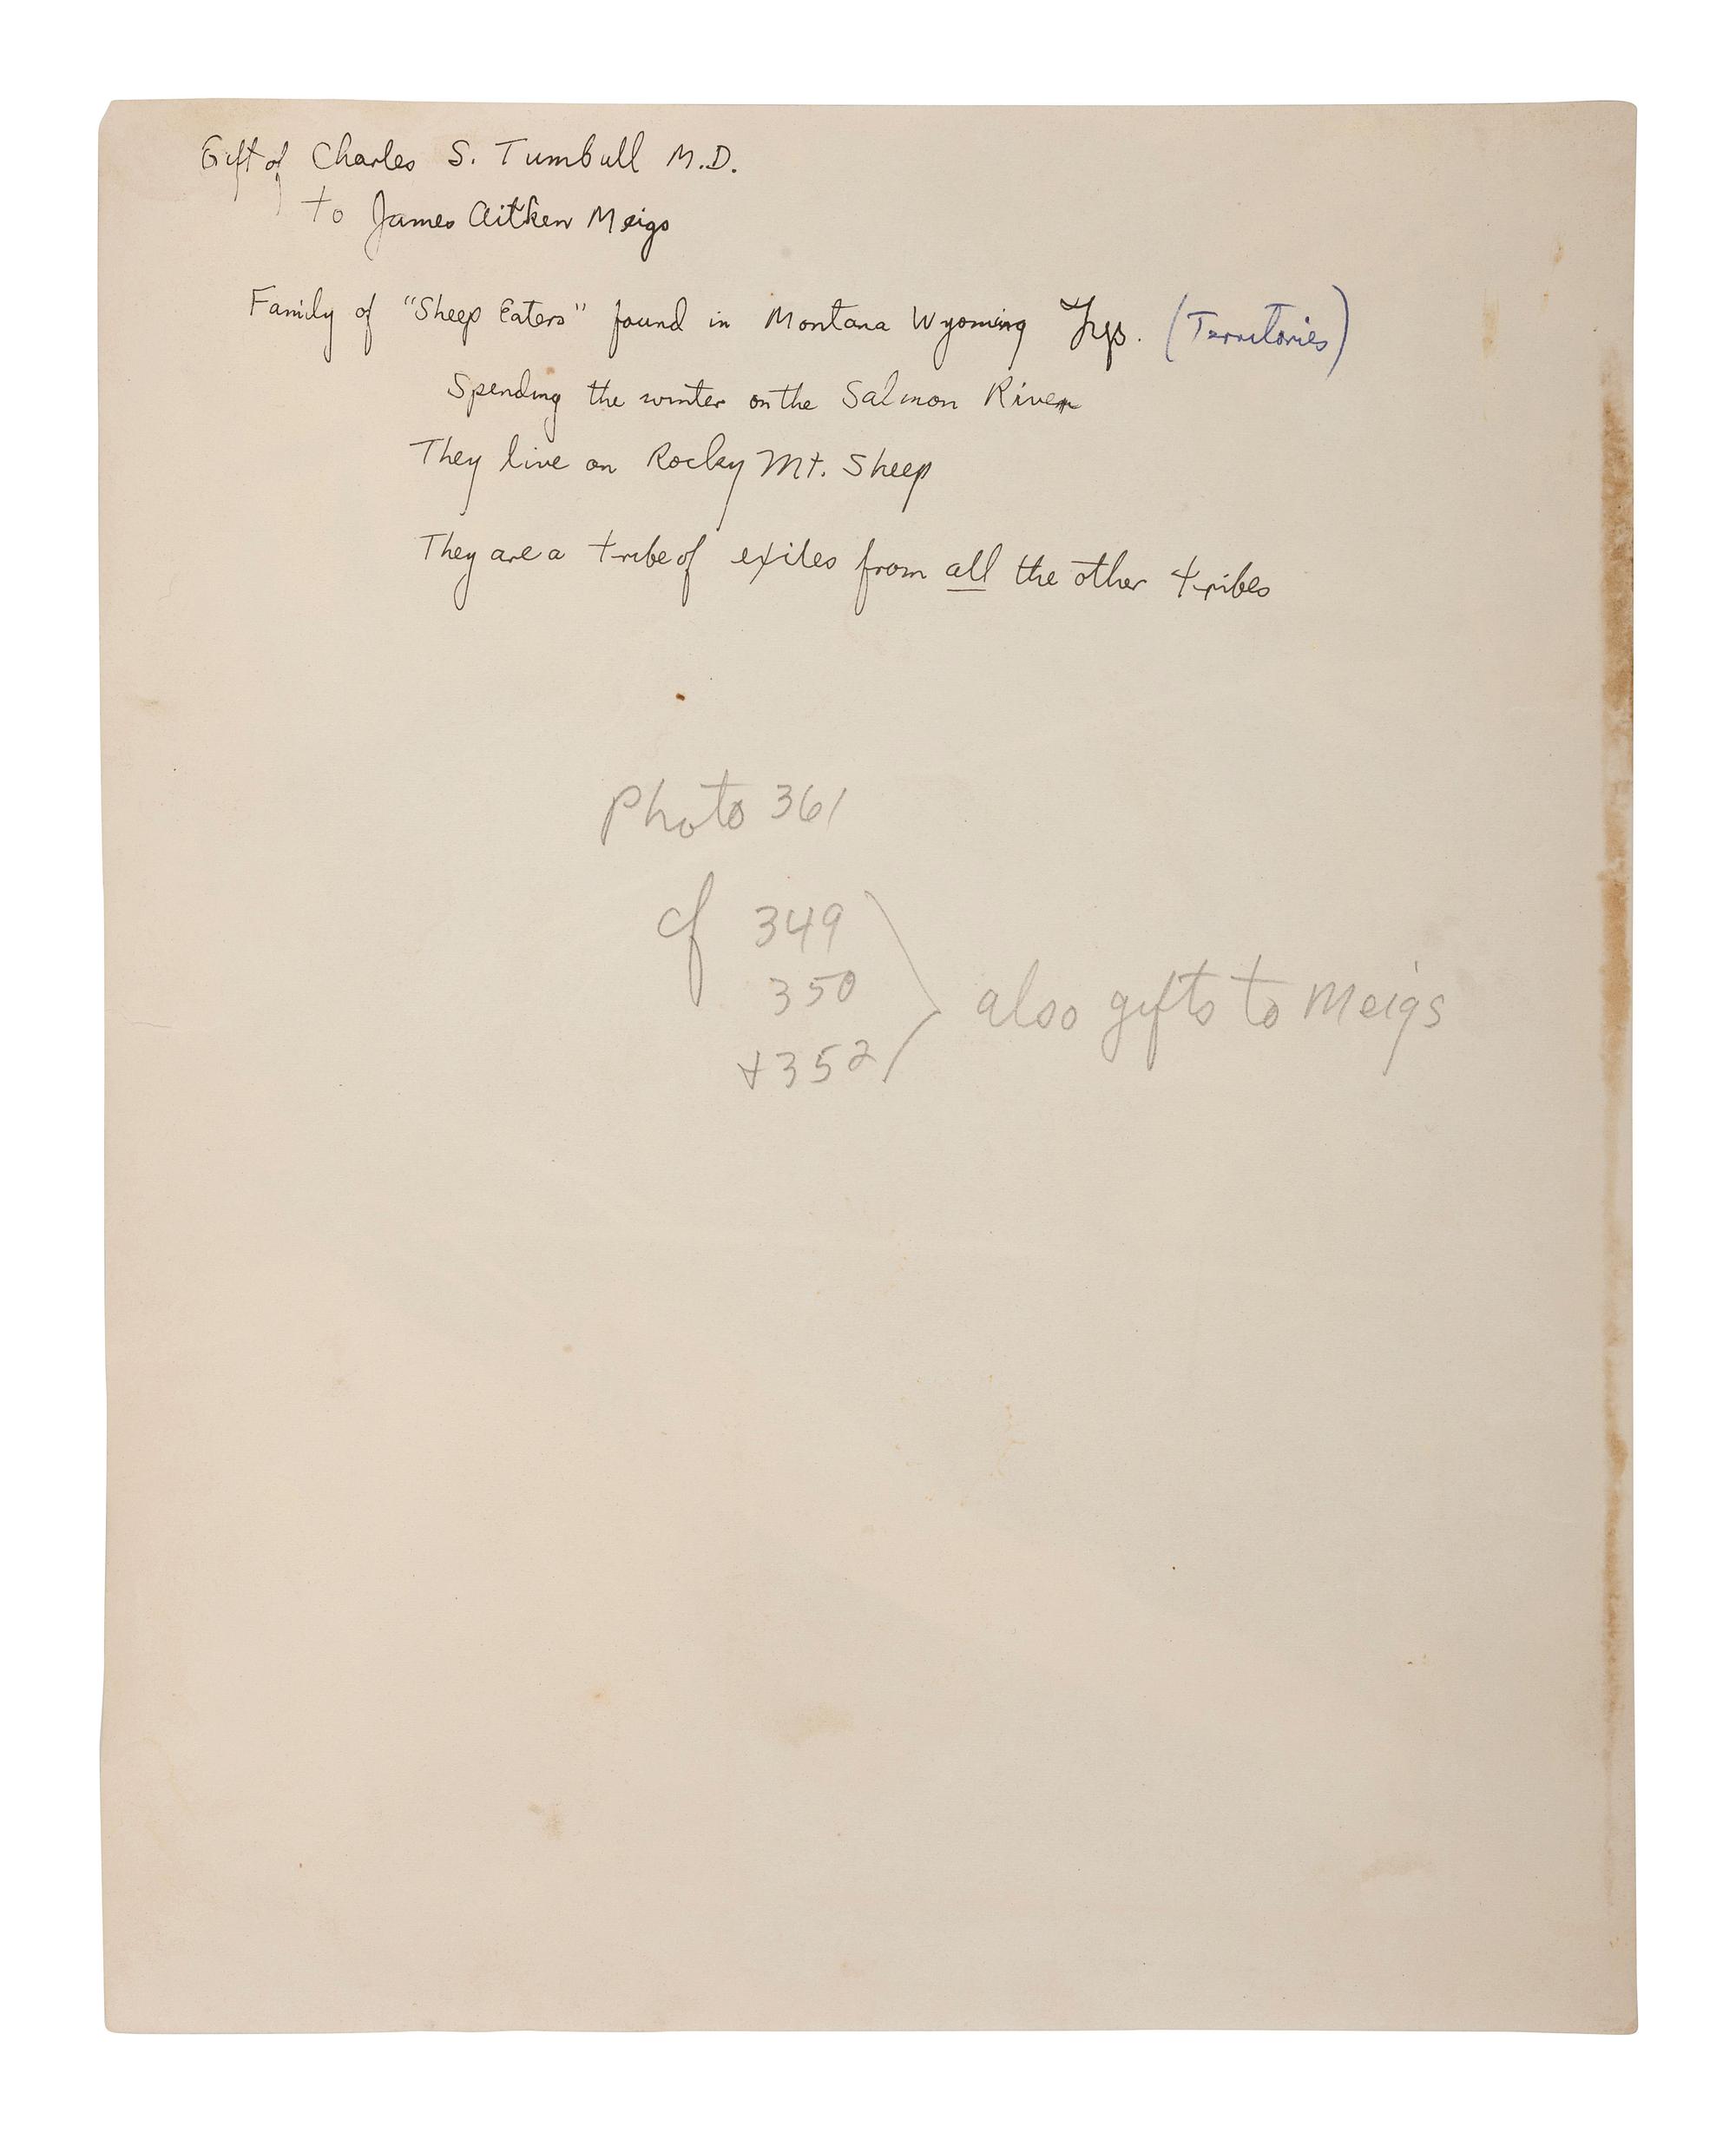 Gift of Charles S. Turnbull M.D.
to James Aitken Meigs
Family of "Sheep Eaters" found in Montana Wyoming Trys. (Territories)
Spending the winter on the Salmon River
They live on Rocky Mt. Sheep
They are a tribe of exiles from all the other tribes
Photo 361
cf 349
350
+352
also gifts to Meigs